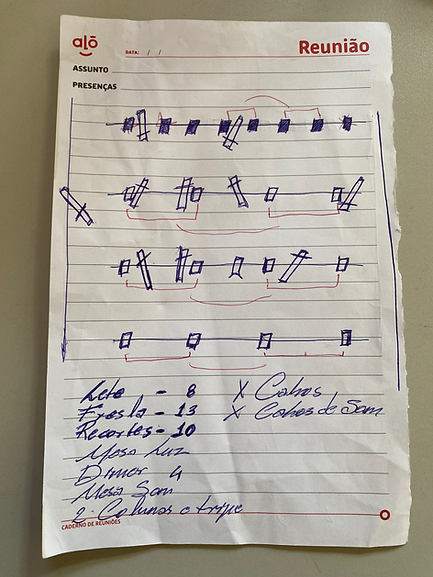 alō
DATA: / /
Reunião
ASSUNTO
PRESENÇAS
- 8
X Cabos
Fresla - 13
X Cabos de Som
Recortes - 10
Mesa Luz
Dimer 4
Mesa Som
2 Colunas e tripe
CADERNO DE REUNIÕES